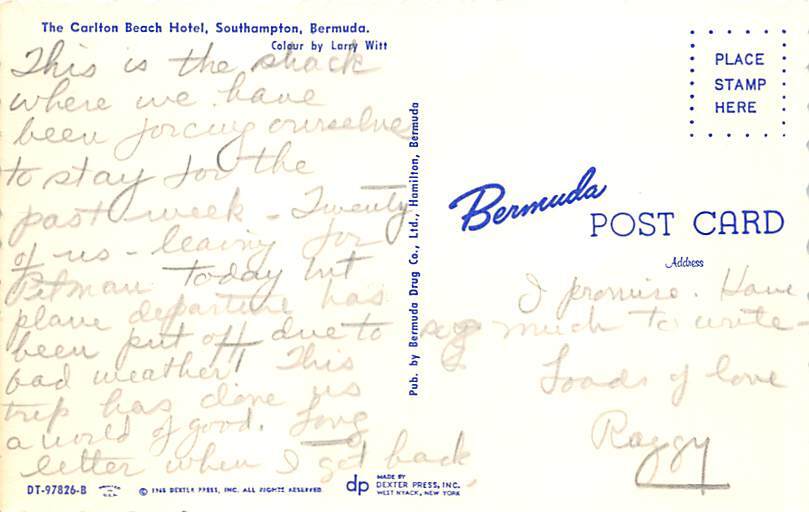 The Carlton Beach Hotel, Southampton, Bermuda.
Colour by Larry Witt
This is the shack
where we have
been forcing ourselves
to stay for the
past week - Twenty
of us - leaving for
Pitman today but
plane departure has
been put off due to
bad weather! This
trip has done us
a world of good. Long
letter when I get back,
Pub. by Bermuda Drug Co., Ltd., Hamilton, Bermuda
PLACE
STAMP
HERE
Bermuda
POST CARD
Address
I promise. Have
so much to write -
Loads of love
Raggy
DT-97826-B
© 1965 DEXTER PRESS, INC. ALL RIGHTS RESERVED
dp
MADE BY
DEXTER PRESS, INC.
WEST NYACK, NEW YORK